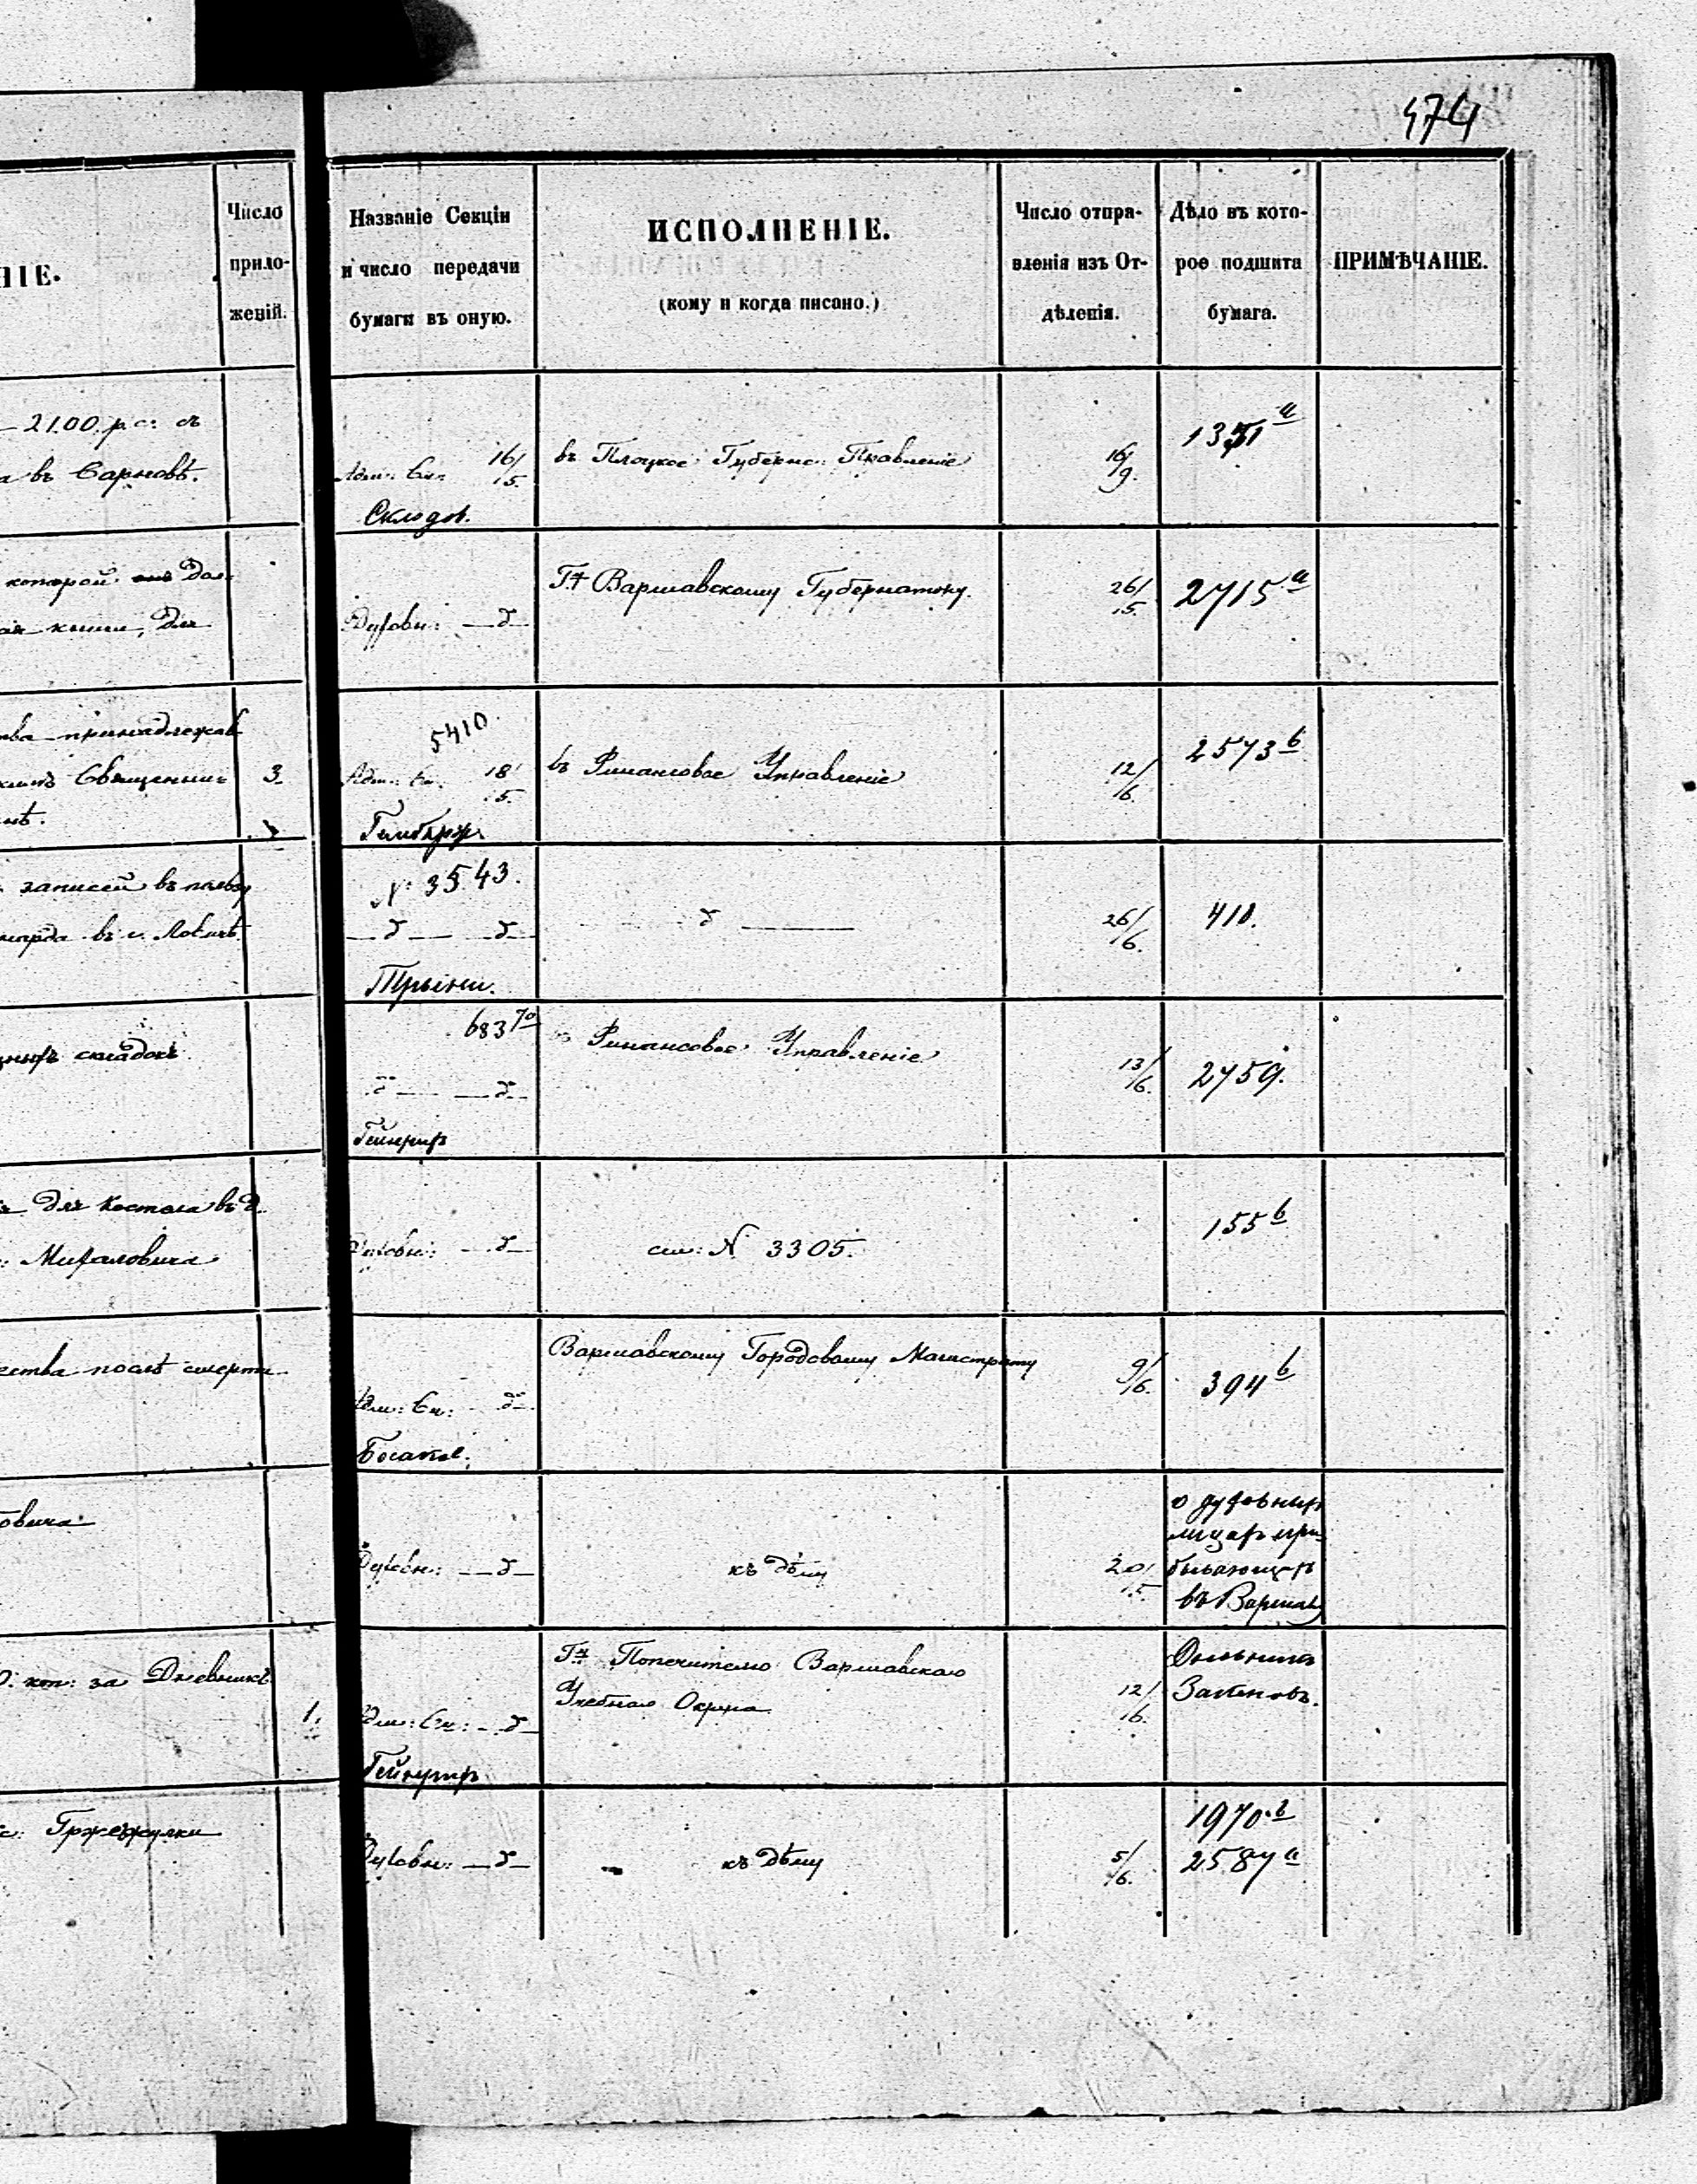 474
НІЕ.
Число
прило-
женій.
Названіе Секціи
и число передачи
бумаги въ оную.
ИСПОЛНЕНІЕ.
(кому и когда писано.)
Число отпра-
вленія изъ От-
дѣленія.
Дѣло въ кото-
рое подшита
бумага.
ПРИМѢЧАНІЕ.
2100 р. с. съ
въ Сарновѣ.
Адм: Ск: 16/5.
Склодов.
въ Плоцкое Губернс: Правленіе
16/9.
1351 а
которой
книги, для
Духовн: — д —
Гну Варшавскому Губернатору.
26/5.
2715 а
принадлежав
Священник 3.
5410.
Адм: Ск: 18/5.
въ Финансовое Управленіе
12/6.
2573 b
записей въ пользу
въ г. Ловичѣ
№ 3543.
— д — — д —
— д —
26/6.
410.
складокъ
683 70
— д — — д —
Гейнрих
въ Финансовое Управленіе
13/6.
2759.
для костела въ д.
Михаловича
Духовн: — д —
см: N 3305.
155 b
ества послѣ смерти
Адм: Ск: — д —
Варшавскому Городовому Магистрату
9/6.
394 b
овича
Духовн: — д —
къ дѣлу
20/5.
о духовныхъ
лицахъ при-
бывающихъ
въ Варшаву
коп: за Дневникъ
1.
Адм: Ск: — д —
Гну Попечителю Варшавскаго
Учебнаго Округа
12/6.
Дневника
Законовъ.
Гржежулки
Духовн: — д —
къ дѣлу
5/6.
1970 b
2587 а